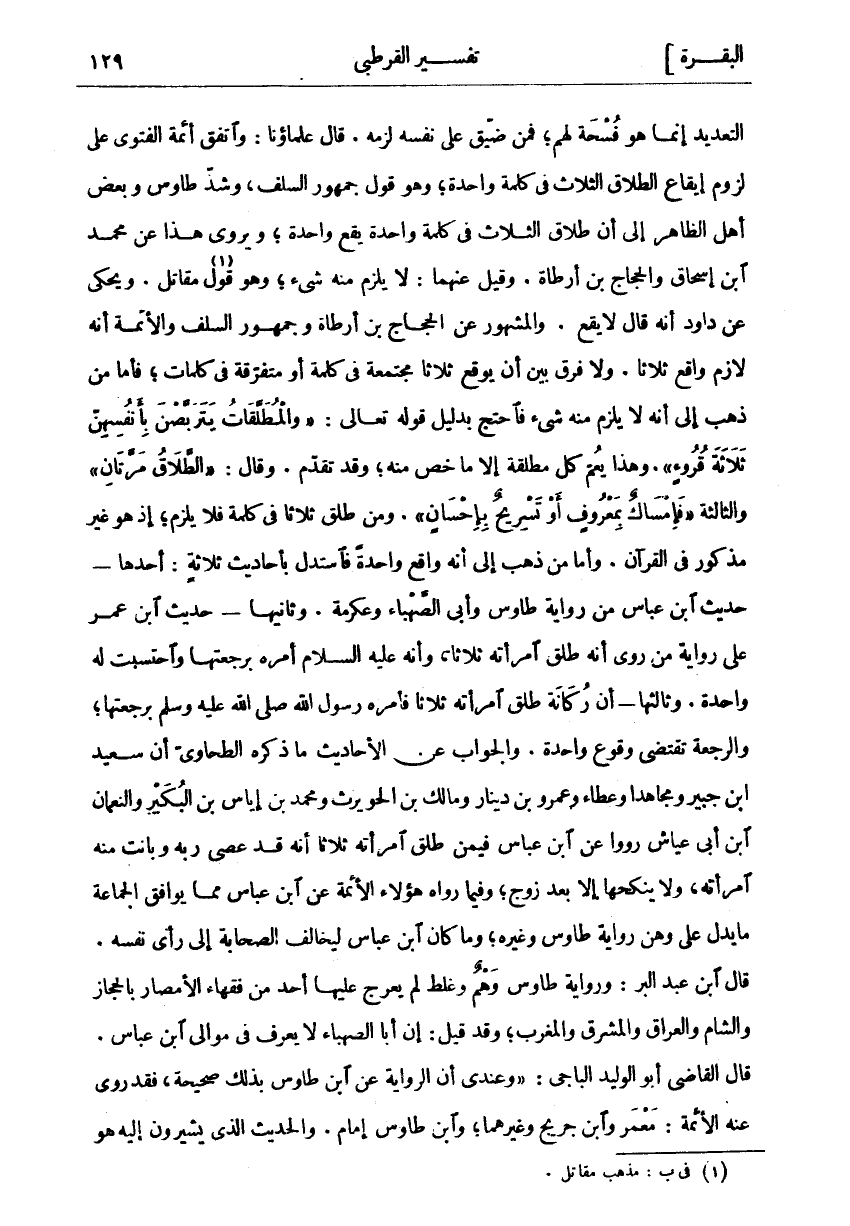 البقرة ]
تفسير القرطبى
١٢٩
التعديد إنما هو فُسْحَة لهم؛ فمن ضيّق على نفسه لزمه . قال علماؤنا : وٱتفق أئمة الفتوى على
لزوم إيقاع الطلاق الثلاث فى كلمة واحدة؛ وهو قول جمهور السلف، وشذّ طاوس وبعض
أهل الظاهر إلى أن طلاق الثلاث فى كلمة واحدة يقع واحدة ؛ ويروى هذا عن محمد
ٱبن إسحاق والحجاج بن أرطاة . وقيل عنهما : لا يلزم منه شىء ؛ وهو قول (١) مقاتل . ويحكى
عن داود أنه قال لا يقع . والمشهور عن الحجاج بن أرطاة وجمهور السلف والأئمة أنه
لازم واقع ثلاثا . ولا فرق بين أن يوقع ثلاثا مجتمعة فى كلمة أو متفرّقة فى كلمات ؛ فأما من
ذهب إلى أنه لا يلزم منه شىء فٱحتج بدليل قوله تعالى : «وَالْمُطَلَّقَاتُ يَتَرَبَّصْنَ بِأَنْفُسِهِنّ
ثَلَاثَةَ قُرُوءٍ» . وهذا يعُم كل مطلقة إلا ما خص منه؛ وقد تقدّم . وقال : «الطَّلَاقُ مَرَّتَانِ»
والثالثة «فَإِمْسَاكٌ بِمَعْرُوفٍ أَوْ تَسْرِيحٌ بِإِحْسَانٍ» . ومن طلق ثلاثا فى كلمة فلا يلزم؛ إذ هو غير
مذكور فى القرآن . وأما من ذهب إلى أنه واقع واحدةً فٱستدل بأحاديث ثلاثةٍ : أحدها —
حديث ٱبن عباس من رواية طاوس وأبى الصَّهْباء وعكرمة . وثانيها — حديث ٱبن عمر
على رواية من روى أنه طلق ٱمرأته ثلاثا، وأنه عليه السلام أمره برجعتها وٱحتسبت له
واحدة . وثالثها — أن رُكَانَة طلق ٱمرأته ثلاثا فأمره رسول الله صلى الله عليه وسلم برجعتها؛
والرجعة تقتضى وقوع واحدة . والجواب عن الأحاديث ما ذكره الطحاوىّ أن سعيد
ابن جبير ومجاهدا وعطاء وعمرو بن دينار ومالك بن الحويرث ومحمد بن إياس بن البُكَيْر والنعمان
ٱبن أبى عياش رووا عن ٱبن عباس فيمن طلق ٱمرأته ثلاثا أنه قد عصى ربه وبانت منه
ٱمرأته، ولا ينكحها إلا بعد زوج؛ وفيما رواه هؤلاء الأئمة عن ٱبن عباس مما يوافق الجماعة
ما يدل على وهن رواية طاوس وغيره؛ وما كان ٱبن عباس ليخالف الصحابة إلى رأى نفسه .
قال ٱبن عبد البر : ورواية طاوس وَهْمٌ وغلط لم يعرج عليها أحد من فقهاء الأمصار بالحجاز
والشام والعراق والمشرق والمغرب؛ وقد قيل : إن أبا الصهباء لا يعرف فى موالى ٱبن عباس .
قال القاضى أبو الوليد الباجى : «وعندى أن الرواية عن ٱبن طاوس بذلك صحيحة، فقد روى
عنه الأئمة : مَعْمَر وٱبن جريج وغيرهما؛ وٱبن طاوس إمام . والحديث الذى يشيرون إليه هو
(١) فى ب : مذهب مقاتل .